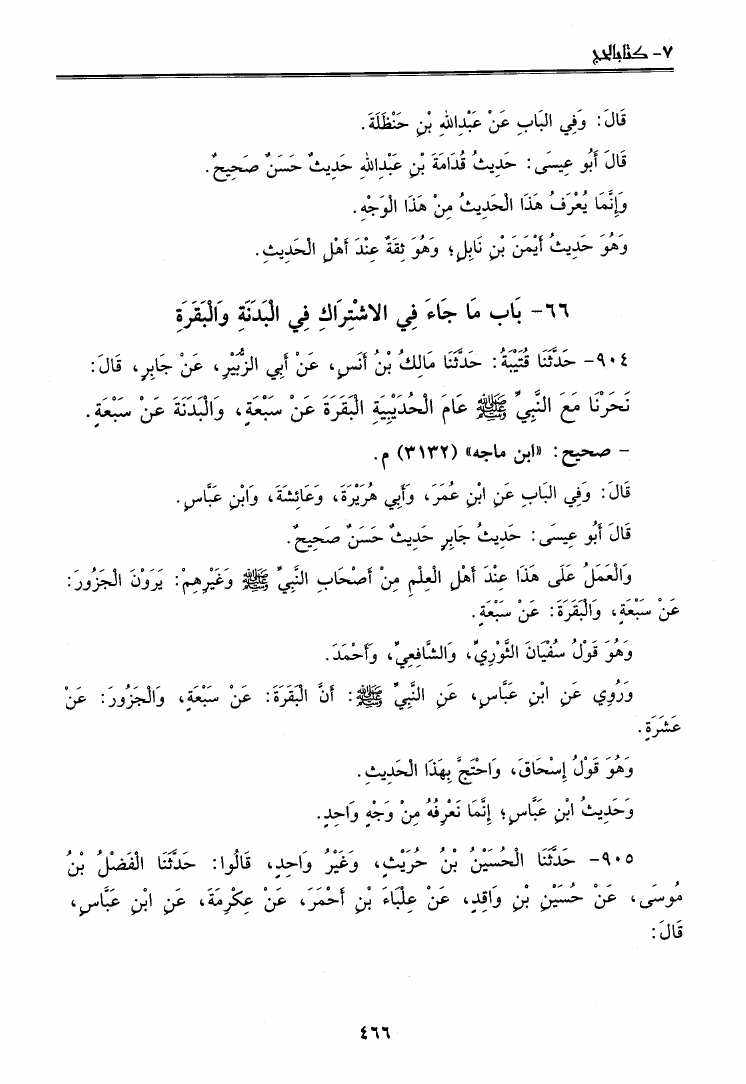 ٧- كتاب الحج
قَالَ: وَفِي البَابِ عَنْ عَبْدِاللهِ بْنِ حَنْظَلَةَ.
قَالَ أَبُو عِيسَى: حَدِيثُ قُدَامَةَ بْنِ عَبْدِاللهِ حَدِيثٌ حَسَنٌ صَحِيحٌ.
وَإِنَّمَا يُعْرَفُ هَذَا الْحَدِيثُ مِنْ هَذَا الْوَجْهِ.
وَهُوَ حَدِيثُ أَيْمَنَ بْنِ نَابِلٍ؛ وَهُوَ ثِقَةٌ عِنْدَ أَهْلِ الْحَدِيثِ.
٦٦- بَاب مَا جَاءَ فِي الاشْتِرَاكِ فِي الْبَدَنَةِ وَالْبَقَرَةِ
٩٠٤- حَدَّثَنَا قُتَيْبَةُ: حَدَّثَنَا مَالِكُ بْنُ أَنَسٍ، عَنْ أَبِي الزُّبَيْرِ، عَنْ جَابِرٍ، قَالَ:
نَحَرْنَا مَعَ النَّبِيِّ ﷺ عَامَ الْحُدَيْبِيَةِ الْبَقَرَةَ عَنْ سَبْعَةٍ، وَالْبَدَنَةَ عَنْ سَبْعَةٍ.
- صحيح: «ابن ماجه» (٣١٣٢) م.
قَالَ: وَفِي البَابِ عَنِ ابْنِ عُمَرَ، وَأَبِي هُرَيْرَةَ، وَعَائِشَةَ، وَابْنِ عَبَّاسٍ.
قَالَ أَبُو عِيسَى: حَدِيثُ جَابِرٍ حَدِيثٌ حَسَنٌ صَحِيحٌ.
وَالْعَمَلُ عَلَى هَذَا عِنْدَ أَهْلِ الْعِلْمِ مِنْ أَصْحَابِ النَّبِيِّ ﷺ وَغَيْرِهِمْ: يَرَوْنَ الْجَزُورَ:
عَنْ سَبْعَةٍ، وَالْبَقَرَةَ: عَنْ سَبْعَةٍ.
وَهُوَ قَوْلُ سُفْيَانَ الثَّوْرِيِّ، وَالشَّافِعِيِّ، وَأَحْمَدَ.
وَرُوِي عَنِ ابْنِ عَبَّاسٍ، عَنِ النَّبِيِّ ﷺ: أَنَّ الْبَقَرَةَ: عَنْ سَبْعَةٍ، وَالْجَزُورَ: عَنْ
عَشَرَةٍ.
وَهُوَ قَوْلُ إِسْحَاقَ، وَاحْتَجَّ بِهَذَا الْحَدِيثِ.
وَحَدِيثُ ابْنِ عَبَّاسٍ؛ إِنَّمَا نَعْرِفُهُ مِنْ وَجْهٍ وَاحِدٍ.
٩٠٥- حَدَّثَنَا الْحُسَيْنُ بْنُ حُرَيْثٍ، وَغَيْرُ وَاحِدٍ، قَالُوا: حَدَّثَنَا الْفَضْلُ بْنُ
مُوسَى، عَنْ حُسَيْنِ بْنِ وَاقِدٍ، عَنْ عِلْبَاءَ بْنِ أَحْمَرَ، عَنْ عِكْرِمَةَ، عَنِ ابْنِ عَبَّاسٍ،
قَالَ:
٤٦٦